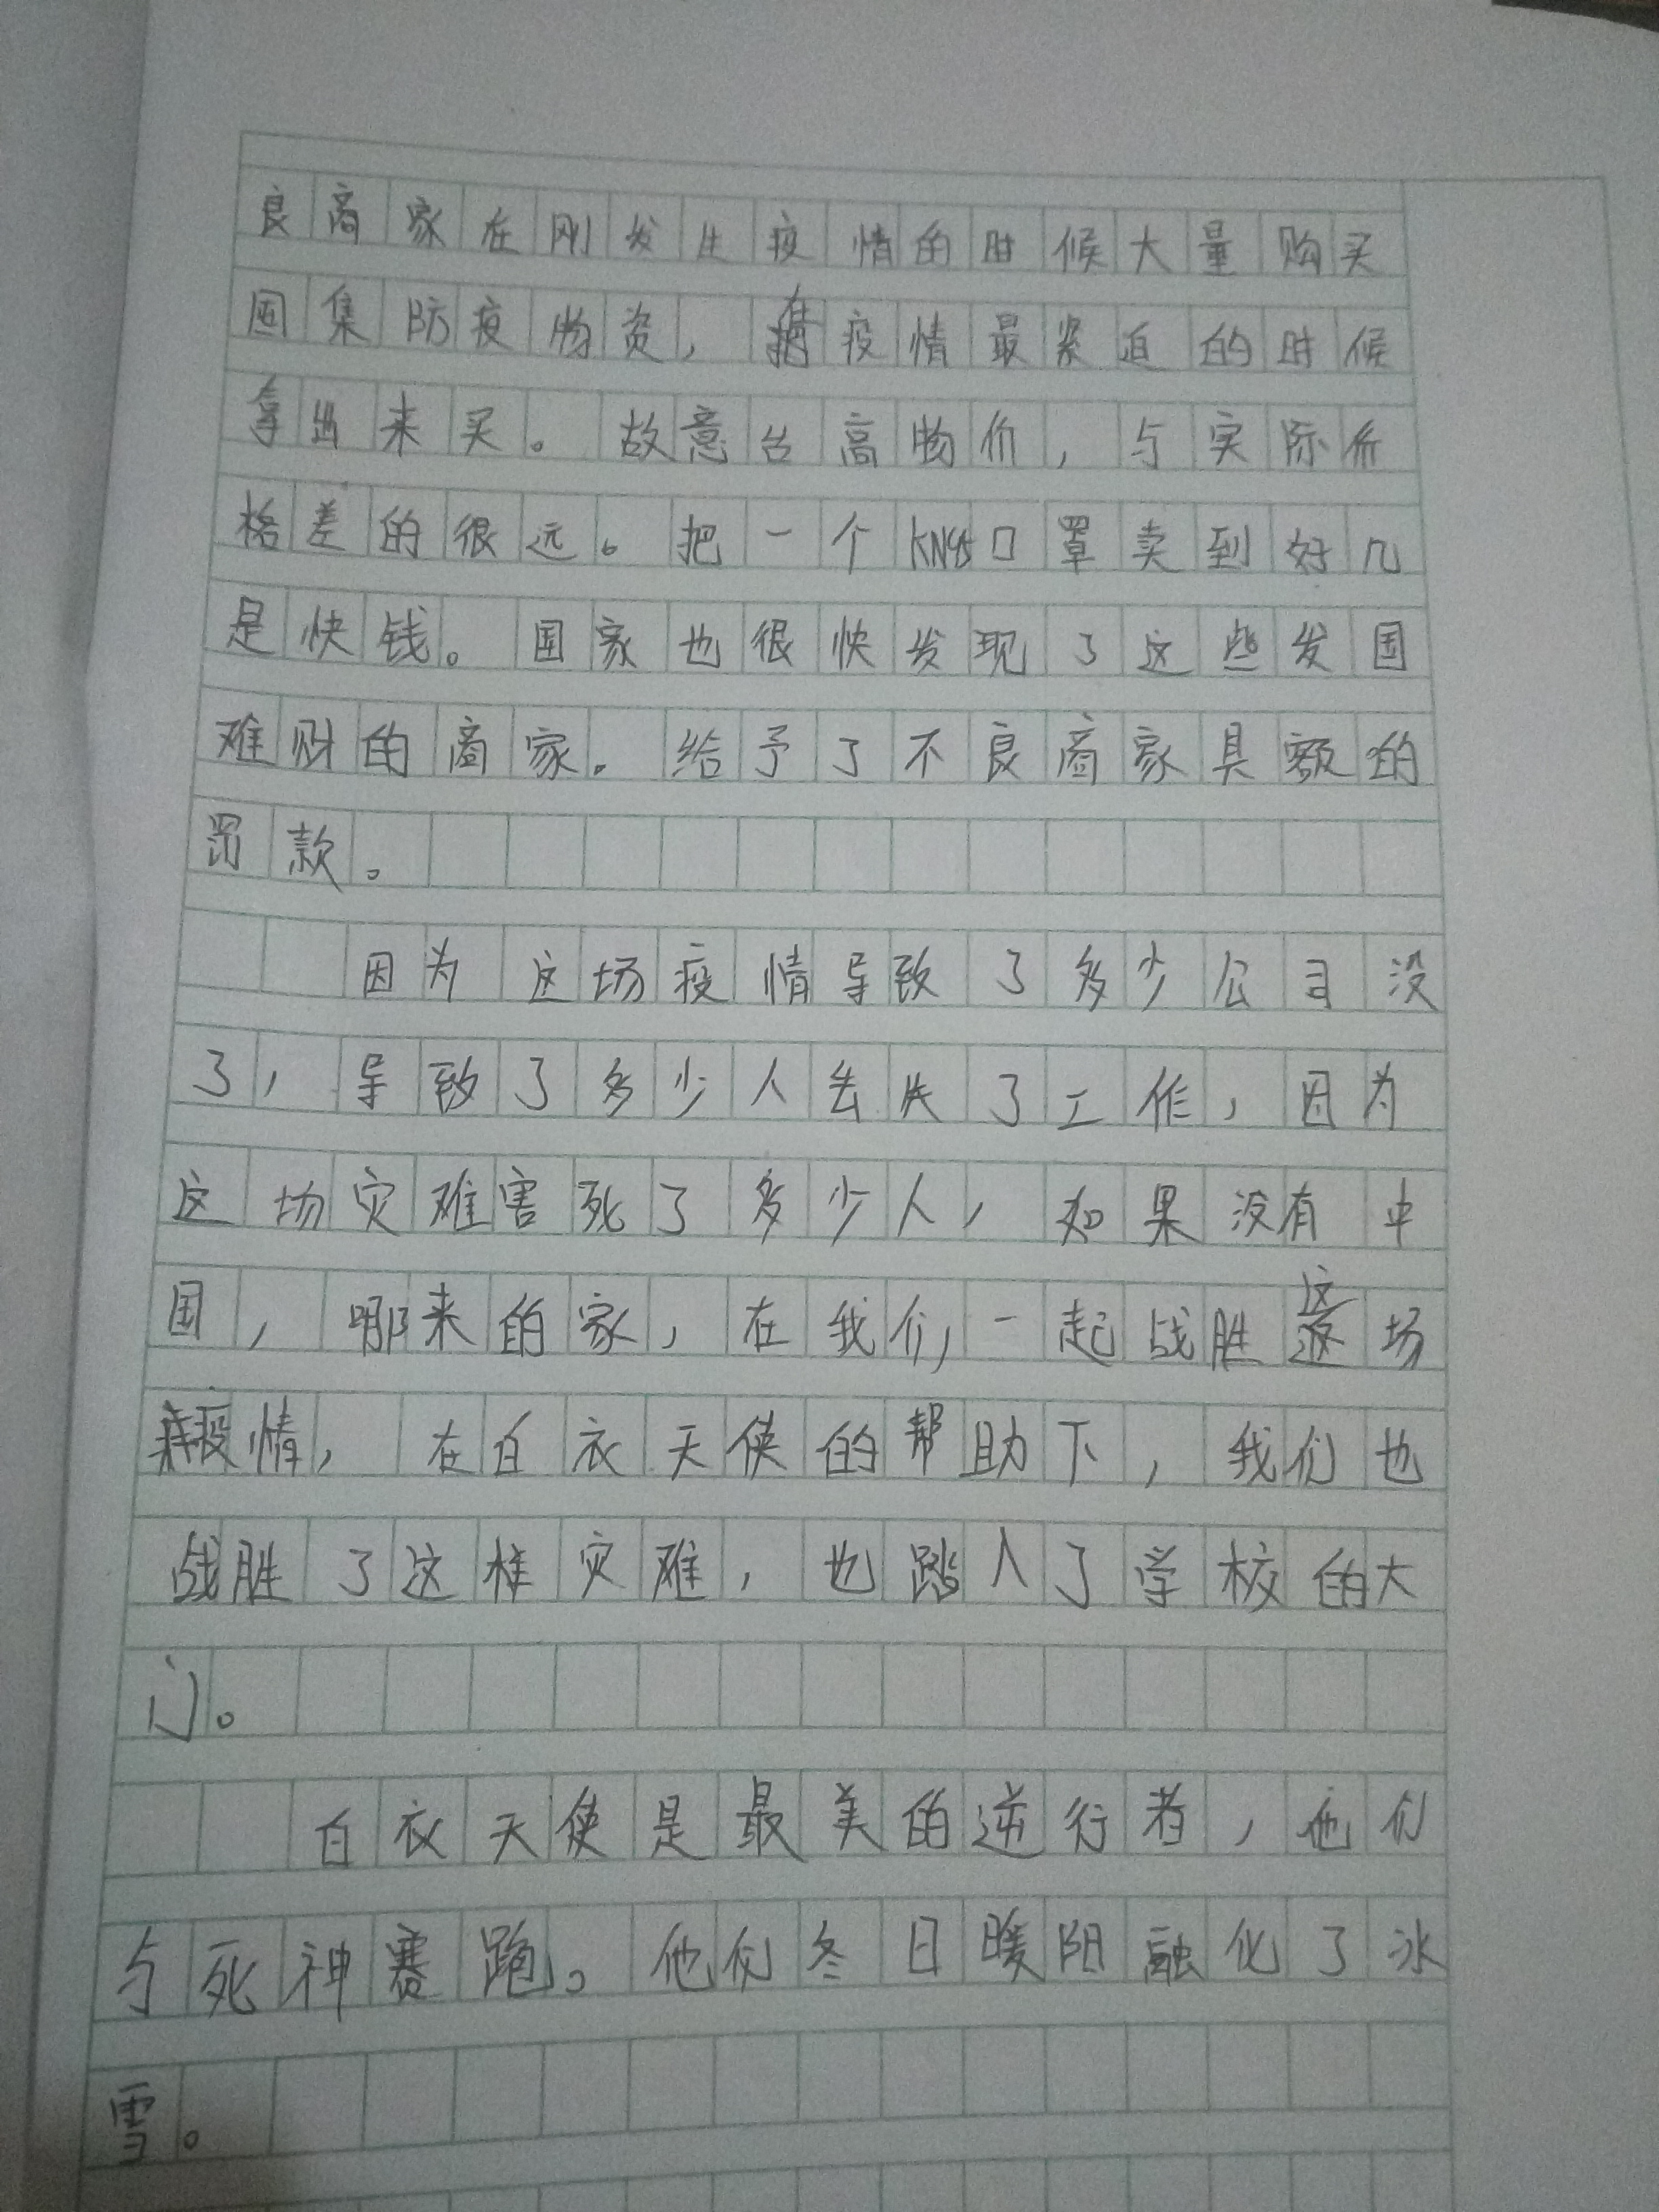 良商家在刚发生疫情的时候大量购买
囤集防疫物资，在疫情最紧迫的时候
拿出来买。故意台高物价，与实际价
格差的很远。把一个KN95口罩卖到好几
是快钱。国家也很快发现了这些发国
难财的商家。给予了不良商家具额的
罚款。
因为这场疫情导致了多少公司没
了，导致了多少人丢失了工作，因为
这场灾难害死了多少人，如果没有中
国，哪来的家，在我们一起战胜这场
疫情，在白衣天使的帮助下，我们也
战胜了这样灾难，也踏入了学校的大
门。
白衣天使是最美的逆行者，他们
与死神赛跑。他们冬日暖阳融化了冰
雪。